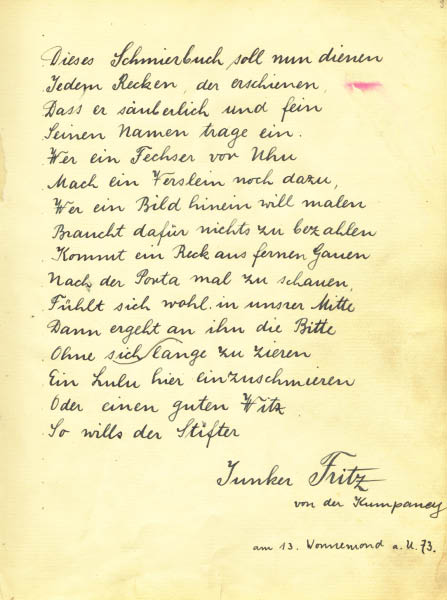 Dieses Schmierbuch soll nun dienen
Jedem Recken, der erschienen,
Dass er säuberlich und fein
Seinen Namen trage ein.
Wer ein Fechser vor Uhu
Mach ein Verslein noch dazu,
Wer ein Bild hinein will malen
Braucht dafür nichts zu bezahlen
Kommt ein Reck aus fernen Gauen
Nach der Porta mal zu schauen,
Fühlt sich wohl in unsrer Mitte
Dann ergeht an ihn die Bitte
Ohne sich lange zu zieren
Ein Lulu hier einzuschmieren
Oder einen guten Witz
So wills der Stifter
Junker Fritz
von der Kumpaney
am 13. Wonnemond a. U. 73.